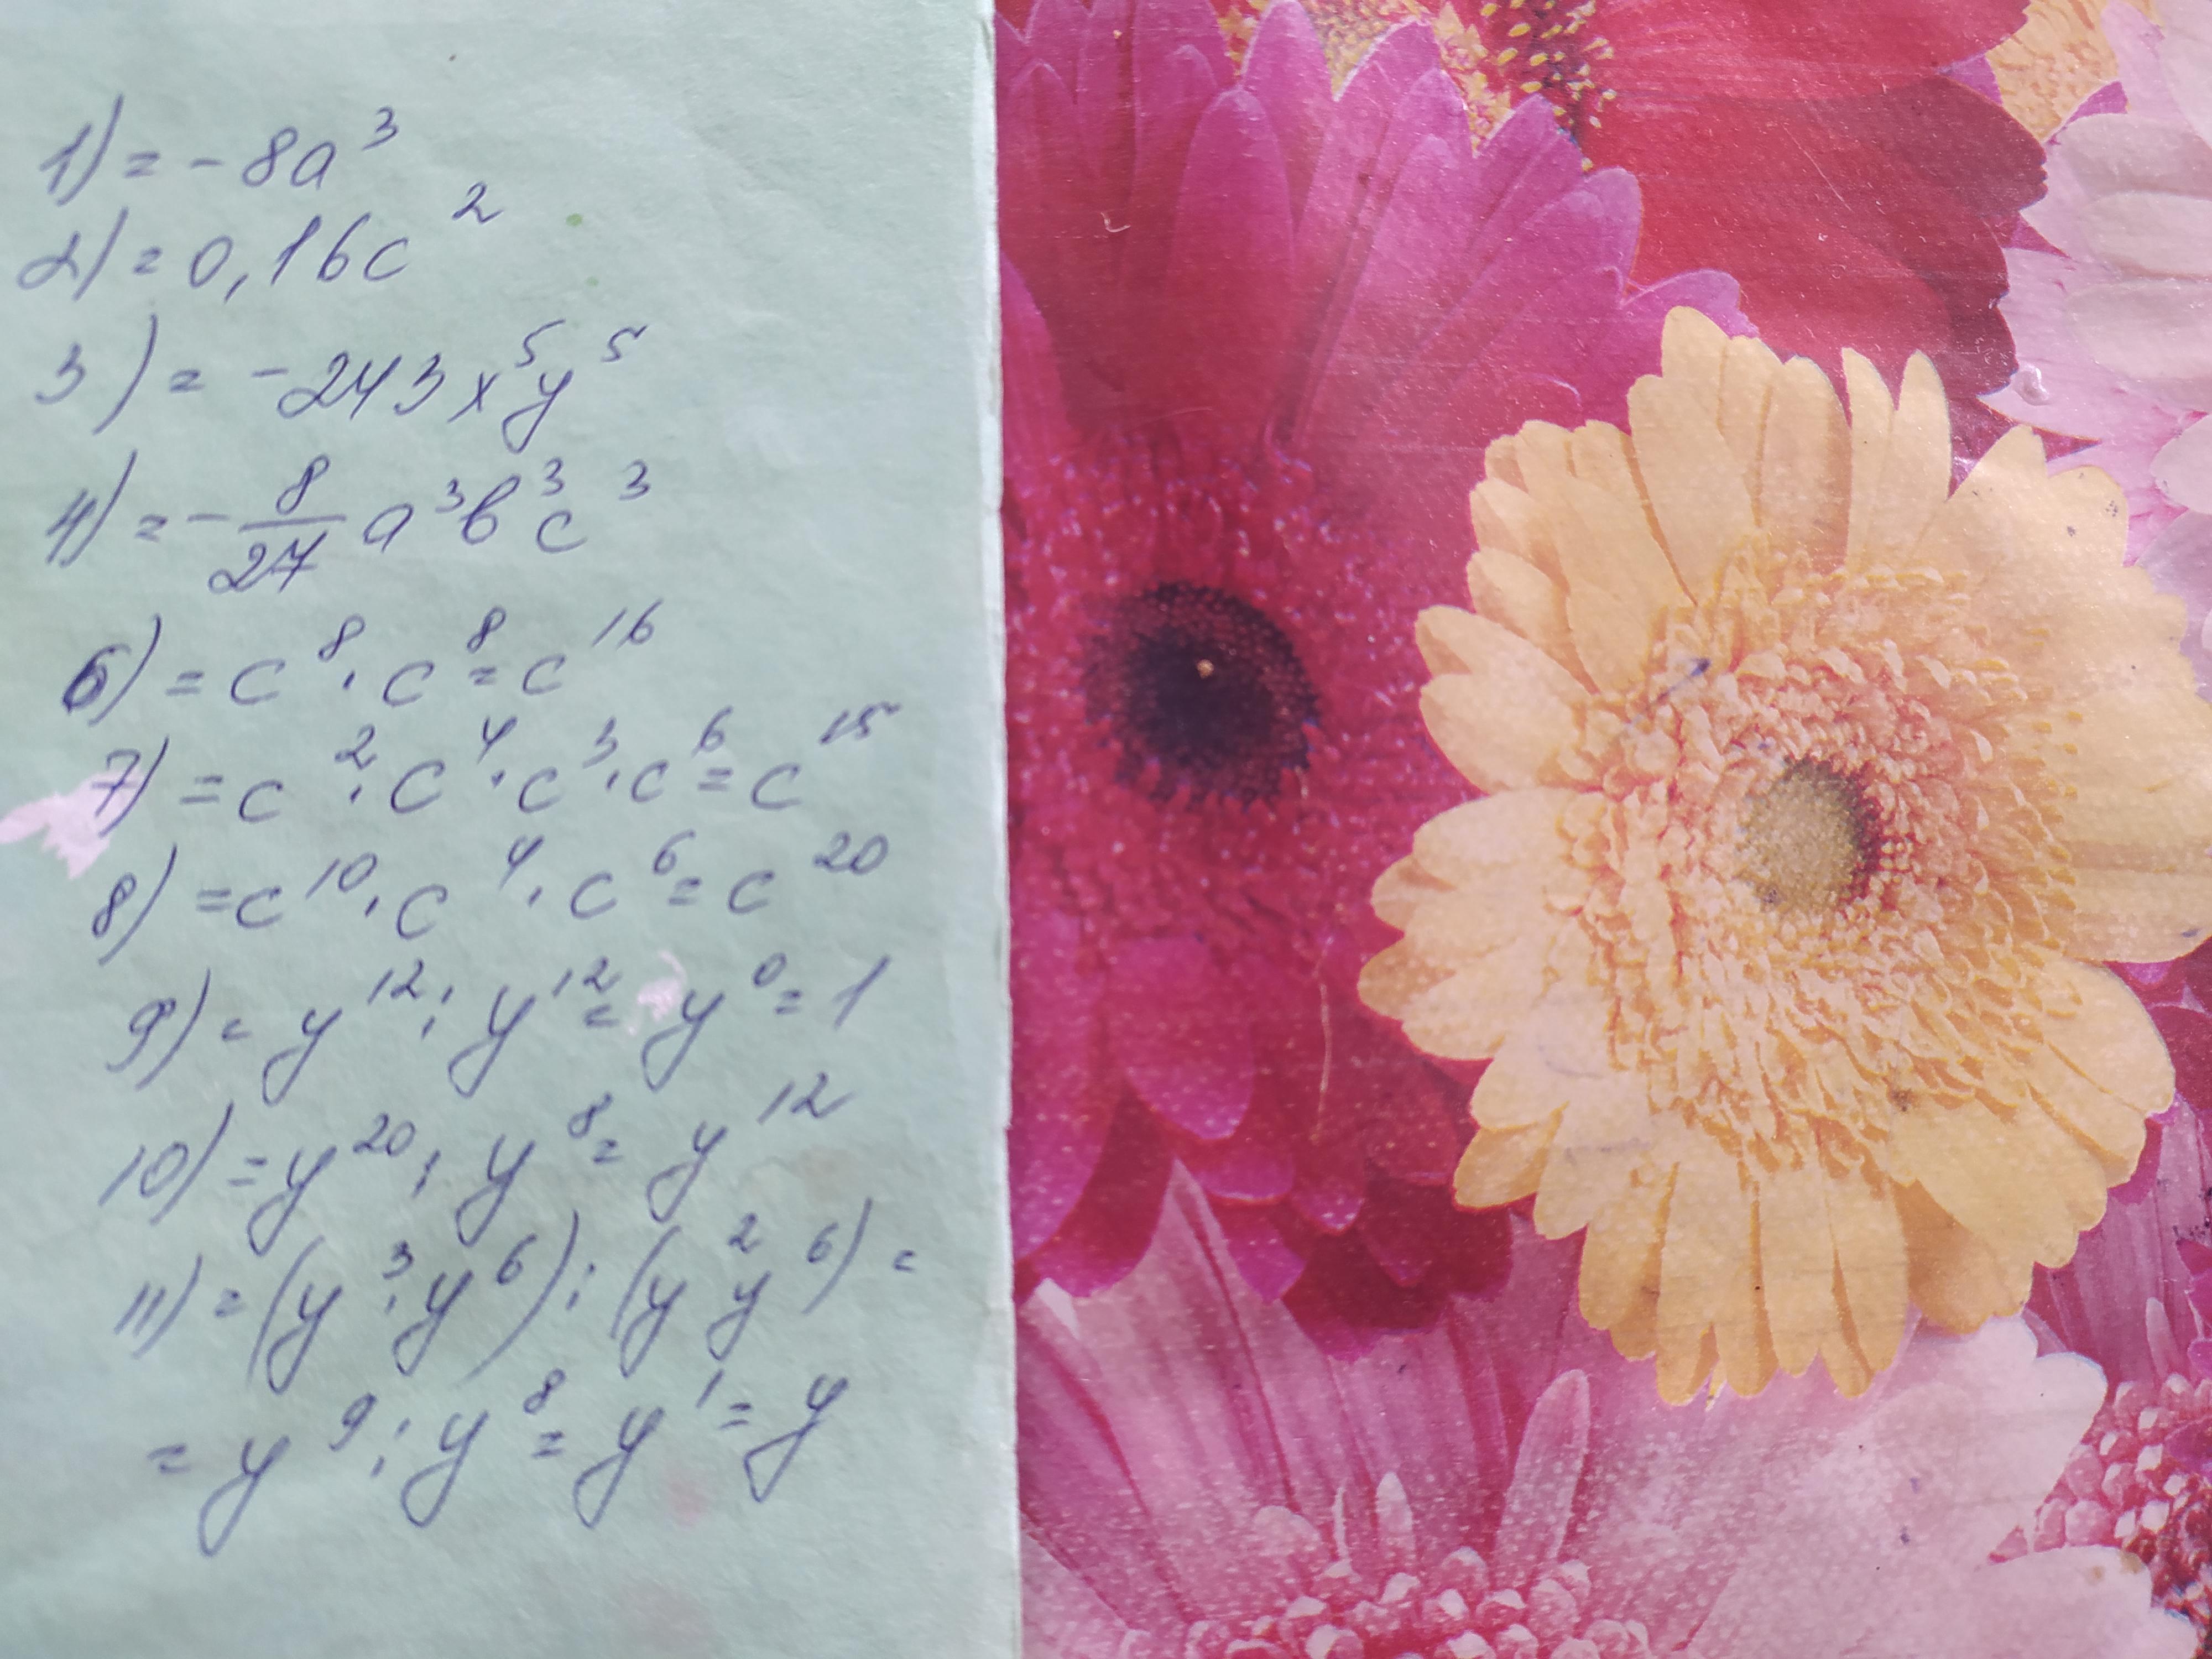 1) = -8a³
2) = 0,16c²
3) = -243x⁵y⁵
4) = -8/27 a³b³c³
6) = c⁸·c⁸ = c¹⁶
7) = c²·c⁴·c³·c⁶ = c¹⁵
8) = c¹⁰·c⁴·c⁶ = c²⁰
9) = y¹²:y¹² = y⁰ = 1
10) = y²⁰:y⁸ = y¹²
11) = (y³·y⁶):(y²y⁶) =
= y⁹:y⁸ = y¹ = y